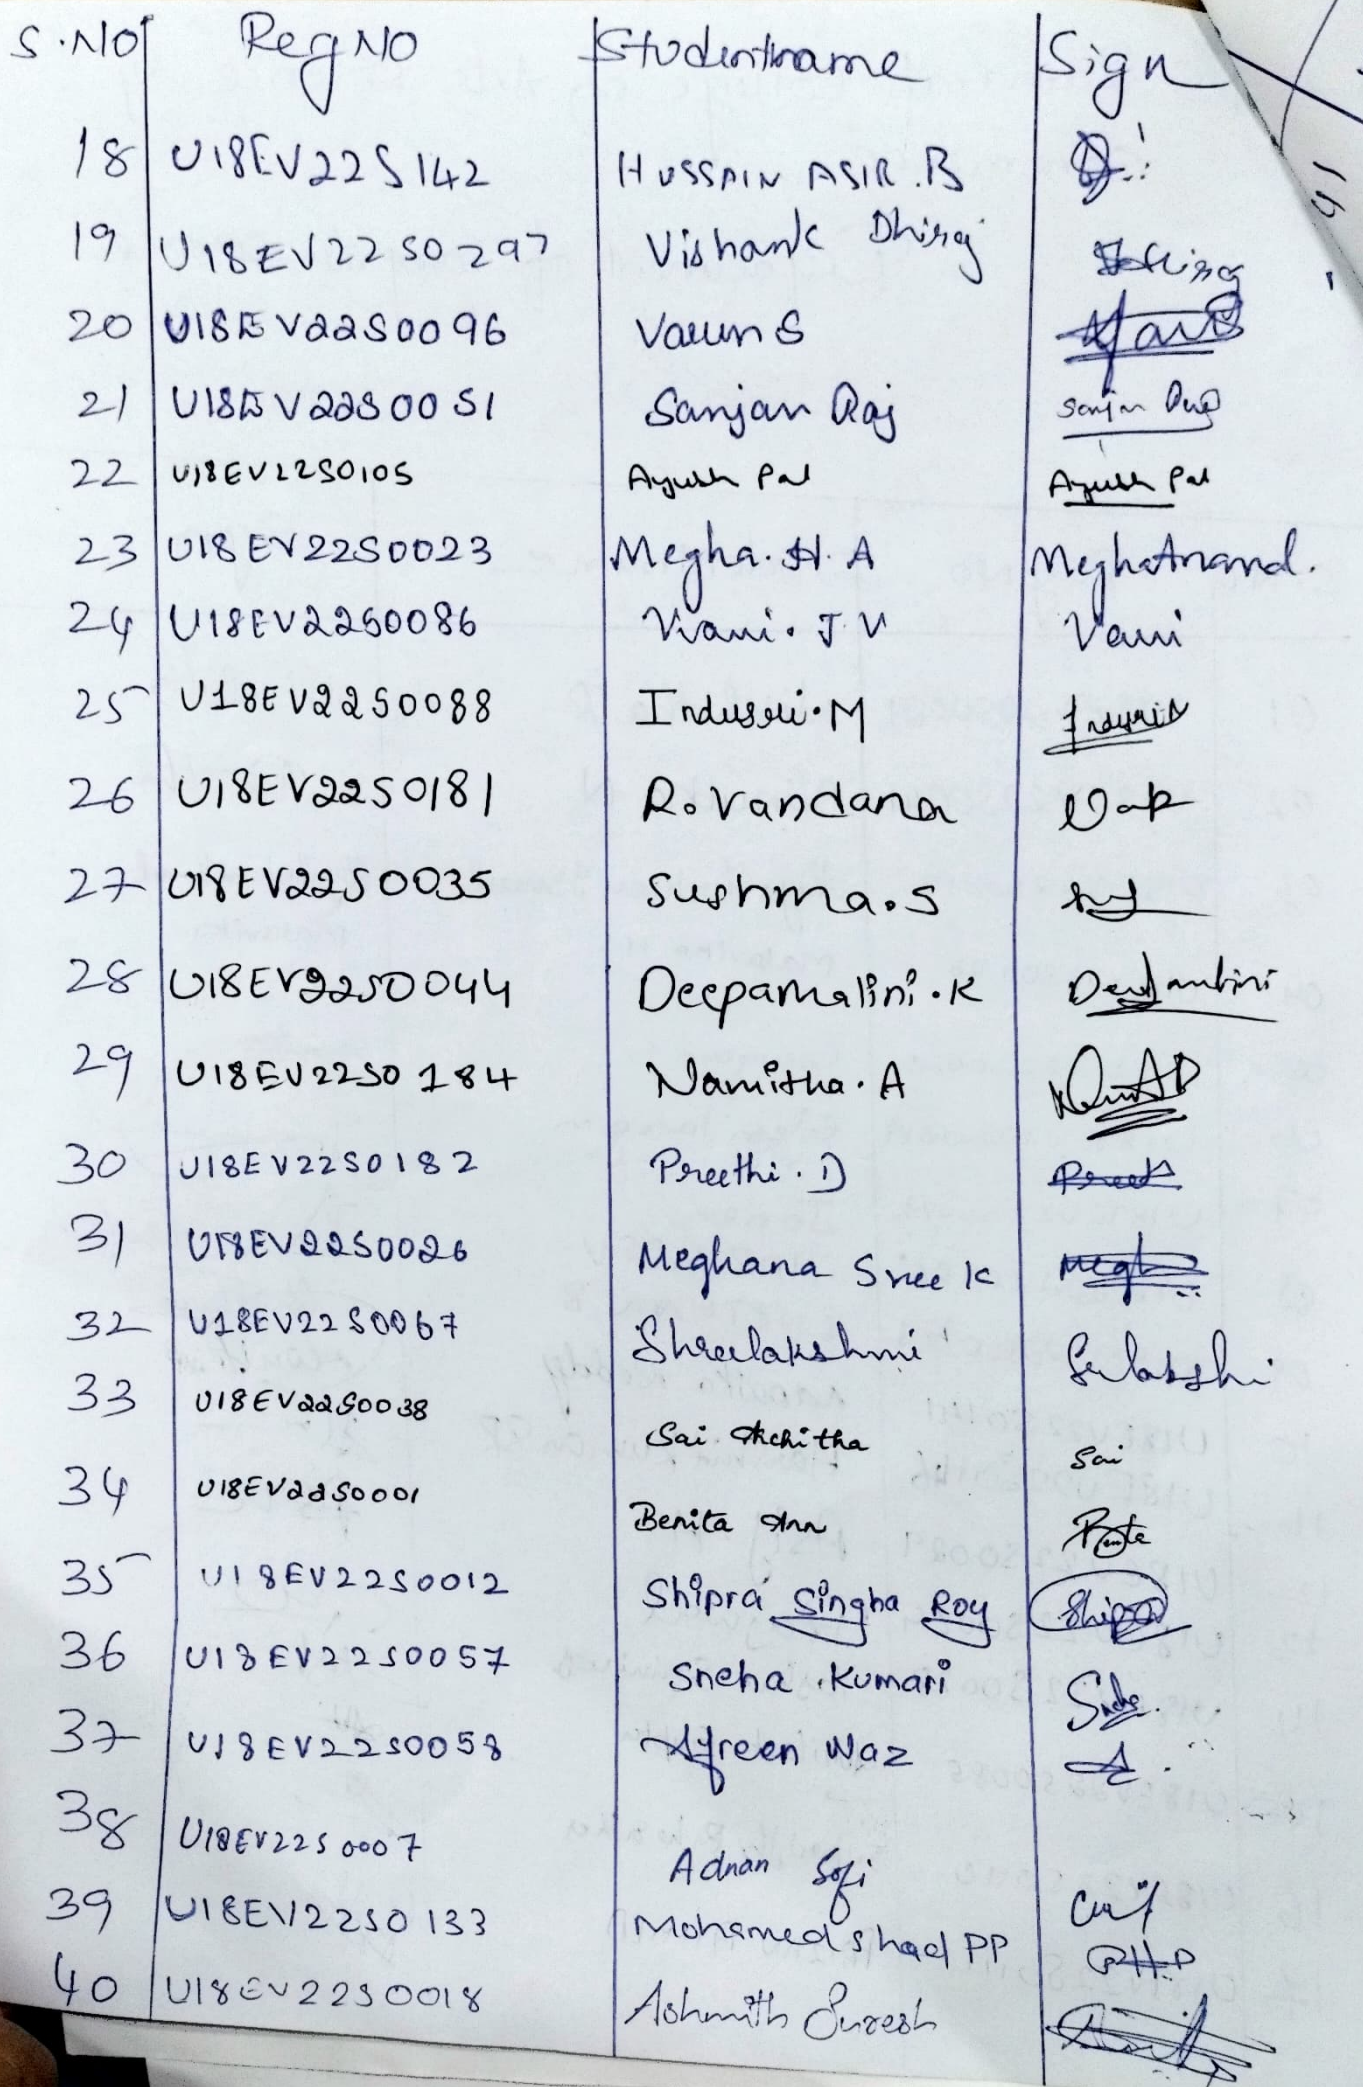 S.NO Reg NO Studentname Sign
18 U18EV22S142 HUSSAIN ASIR.B
19 U18EV22S0297 Vishank Dhiraj
20 U18EV22S0096 Varun S
21 U18EV22S0051 Sanjan Raj Sanjan Raj
22 U18EV22S0105 Ayush Pal Ayush Pal
23 U18EV22S0023 Megha.H.A MeghaAnand.
24 U18EV22S0086 Vani.J.V Vani
25 U18EV22S0088 Indusri.M
26 U18EV22S0181 R.Vandana
27 U18EV22S0035 Sushma.S
28 U18EV22S0044 Deepamalini.K
29 U18EV22S0184 Namitha.A
30 U18EV22S0182 Preethi.D
31 U18EV22S0026 Meghana Sree K Megh
32 U18EV22S0067 Shreelakshmi
33 U18EV22S0038 Sai Achitha Sai
34 U18EV22S0001 Benita Ann
35 U18EV22S0012 Shipra Singha Roy Shipra
36 U18EV22S0057 Sneha Kumari
37 U18EV22S0058 Afreen Naz
38 U18EV22S0007 Adnan Sofi
39 U18EV22S0133 Mohamed shad PP
40 U18EV22S0018 Ashmith Suresh